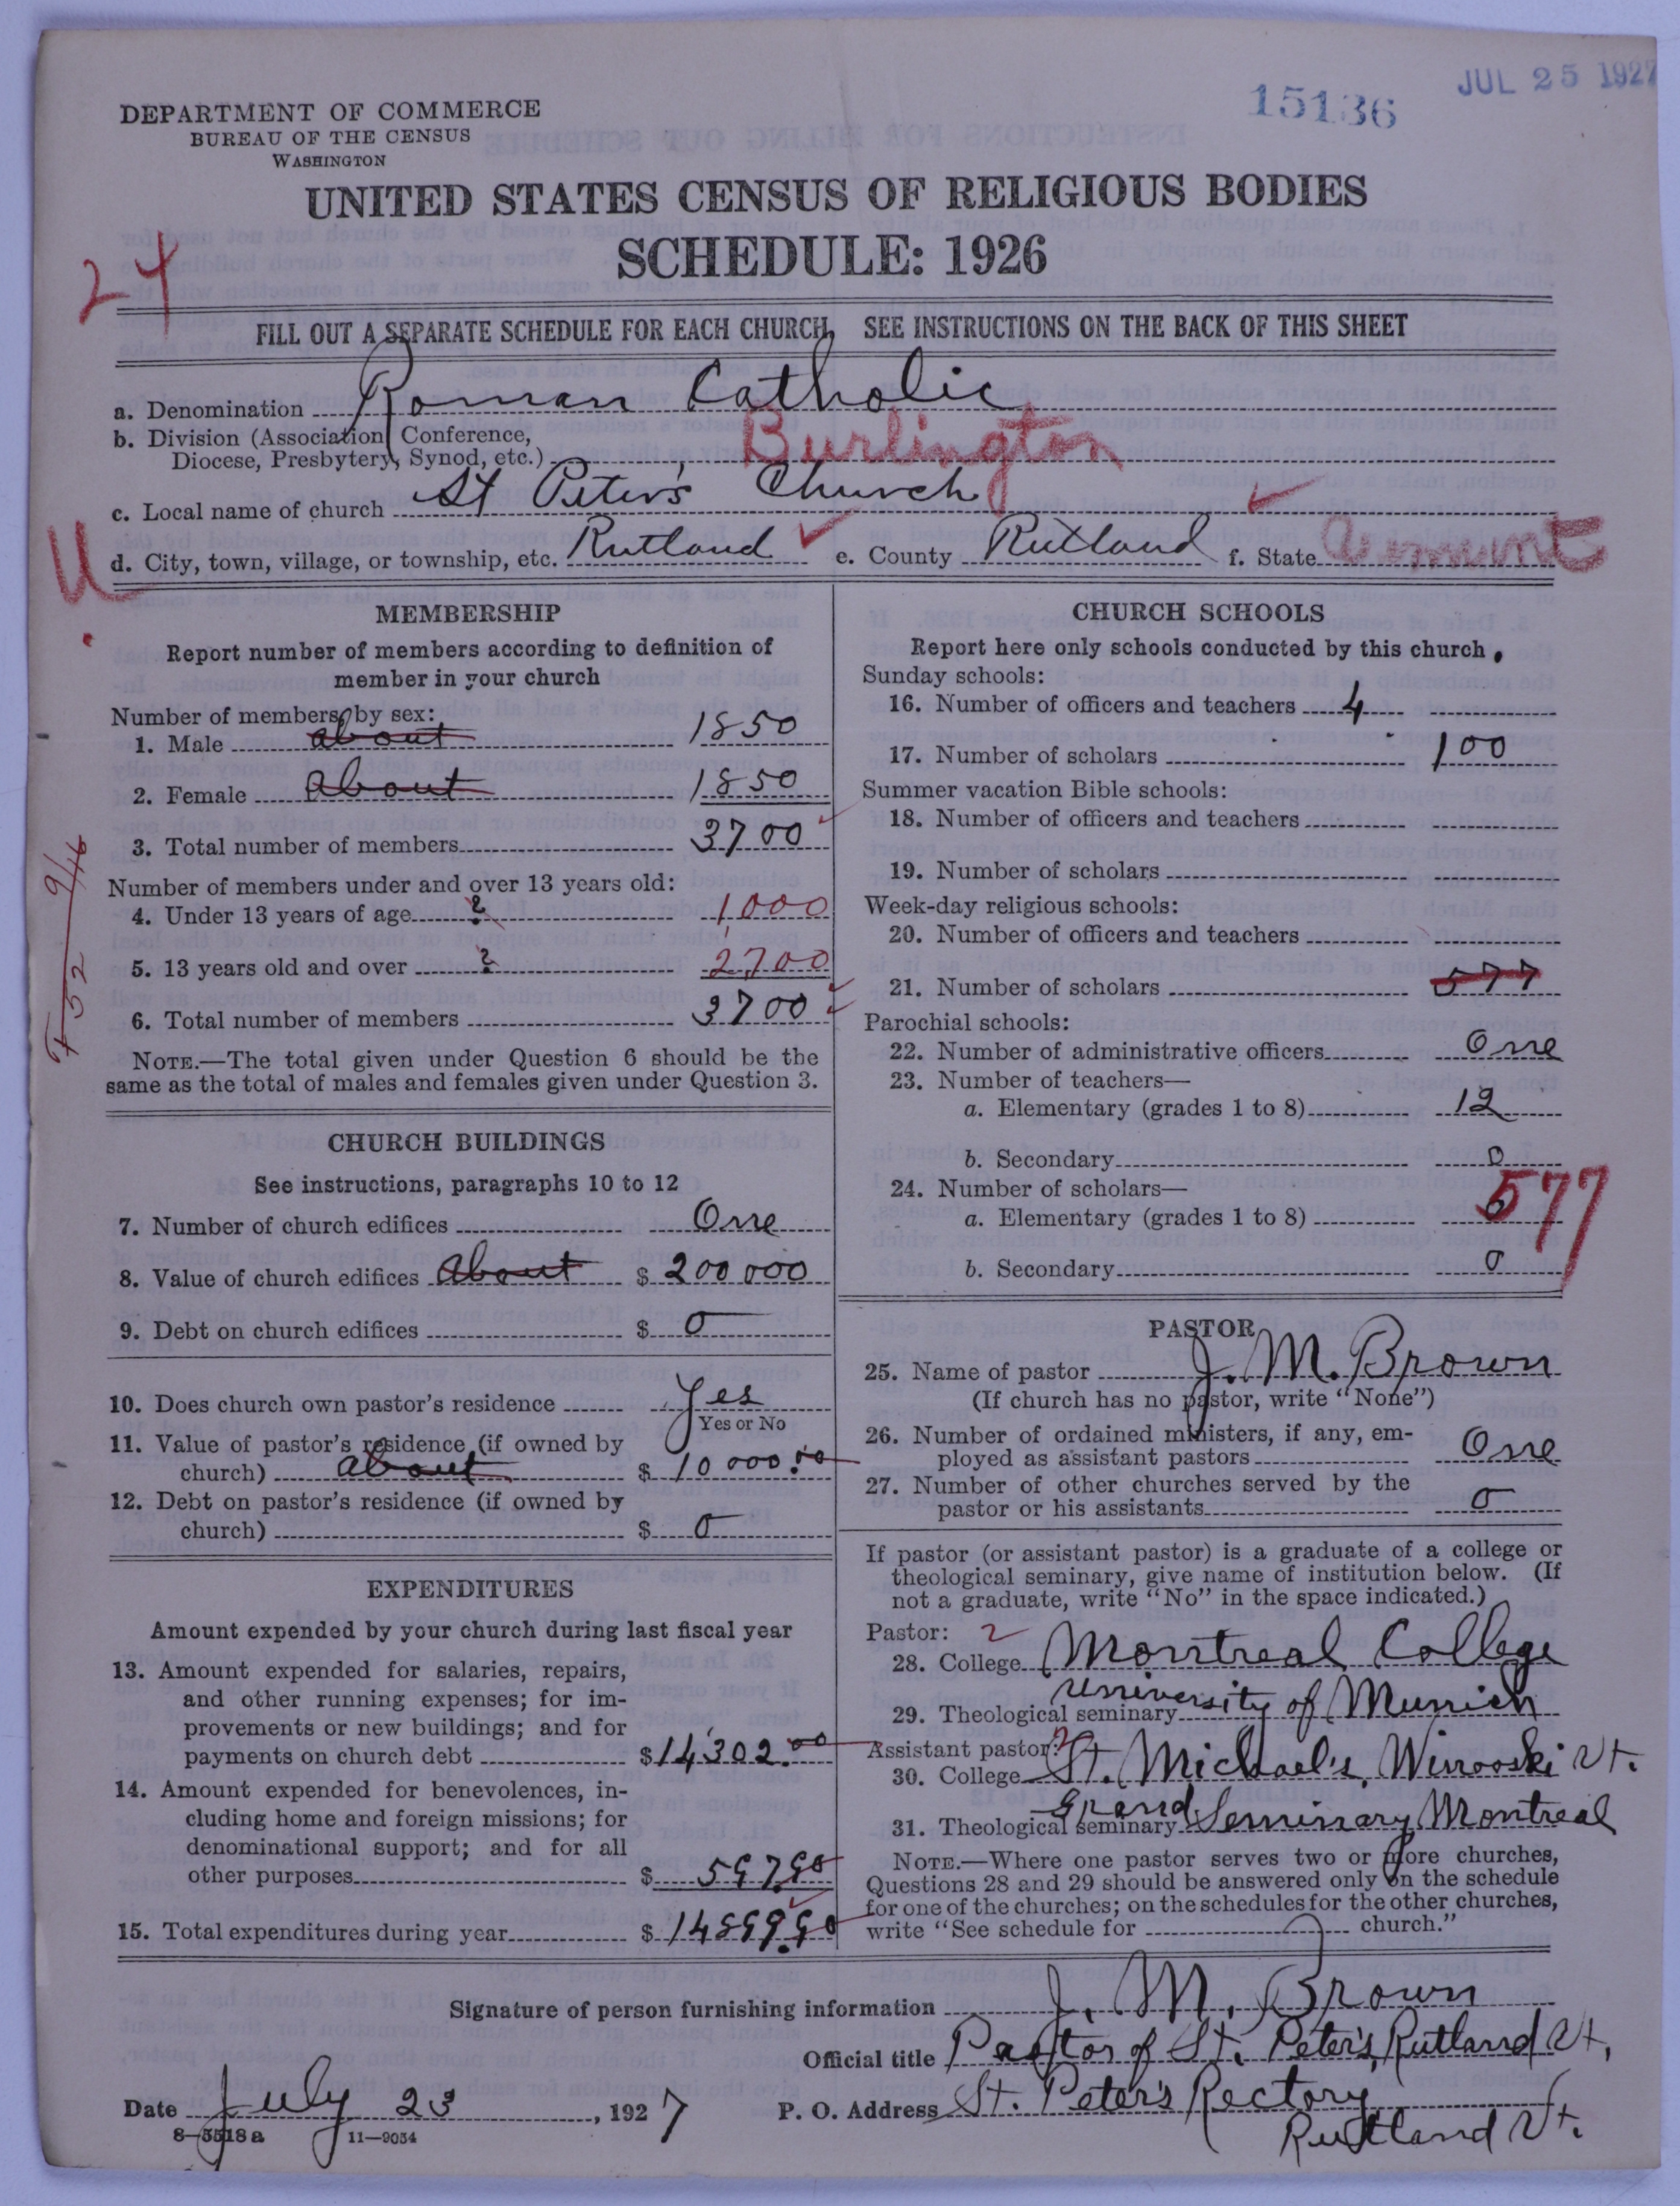 15136
JUL 25 1927
DEPARTMENT OF COMMERCE
BUREAU OF THE CENSUS
WASHINGTON
UNITED STATES CENSUS OF RELIGIOUS BODIES
SCHEDULE: 1926
24
FILL OUT A SEPARATE SCHEDULE FOR EACH CHURCH. SEE INSTRUCTIONS ON THE BACK OF THIS SHEET
a. Denomination Roman Catholic
b. Division (Association, Conference,
Diocese, Presbytery, Synod, etc.) Burlington
c. Local name of church St Peter's Church
d. City, town, village, or township, etc. Rutland e. County Rutland f. State Vermont
U.
MEMBERSHIP
Report number of members according to definition of
member in your church
Number of members, by sex:
1. Male about 1850
2. Female about 1850
3. Total number of members 3700
Number of members under and over 13 years old:
4. Under 13 years of age ? 1000
5. 13 years old and over ? 2700
6. Total number of members 3700
NOTE.—The total given under Question 6 should be the
same as the total of males and females given under Question 3.
F 52 9/16
CHURCH BUILDINGS
See instructions, paragraphs 10 to 12
7. Number of church edifices One
8. Value of church edifices about $ 200 000
9. Debt on church edifices $ 0
10. Does church own pastor's residence Yes
Yes or No
11. Value of pastor's residence (if owned by
church) about $ 10 000.00
12. Debt on pastor's residence (if owned by
church) $ 0
EXPENDITURES
Amount expended by your church during last fiscal year
13. Amount expended for salaries, repairs,
and other running expenses; for im-
provements or new buildings; and for
payments on church debt $ 14,302.00
14. Amount expended for benevolences, in-
cluding home and foreign missions; for
denominational support; and for all
other purposes $ 597.90
15. Total expenditures during year $ 14899.90
CHURCH SCHOOLS
Report here only schools conducted by this church.
Sunday schools:
16. Number of officers and teachers 4
17. Number of scholars 100
Summer vacation Bible schools:
18. Number of officers and teachers
19. Number of scholars
Week-day religious schools:
20. Number of officers and teachers
21. Number of scholars 577
Parochial schools:
22. Number of administrative officers One
23. Number of teachers—
a. Elementary (grades 1 to 8) 12
b. Secondary 0
24. Number of scholars—
a. Elementary (grades 1 to 8) 577
b. Secondary 0
PASTOR
25. Name of pastor J. M. Brown
(If church has no pastor, write "None")
26. Number of ordained ministers, if any, em-
ployed as assistant pastors One
27. Number of other churches served by the
pastor or his assistants 0
If pastor (or assistant pastor) is a graduate of a college or
theological seminary, give name of institution below. (If
not a graduate, write "No" in the space indicated.)
Pastor: 2
28. College Montreal College
29. Theological seminary University of Munich
Assistant pastor: 2
30. College St. Michael's, Winooski Vt.
31. Theological seminary Grand Seminary Montreal
NOTE.—Where one pastor serves two or more churches,
Questions 28 and 29 should be answered only on the schedule
for one of the churches; on the schedules for the other churches,
write "See schedule for church."
Signature of person furnishing information J. M. Brown
Official title Pastor of St. Peter's, Rutland Vt.
Date July 23, 1927 P. O. Address St. Peter's Rectory
Rutland Vt.
8—5518 a 11—9054